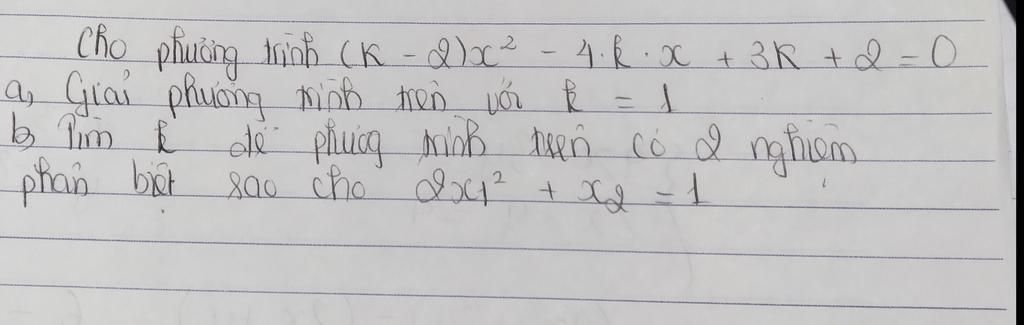 Cho phương trình (K - 2)x² - 4.k.x + 3K + 2 = 0
a, Giải phương trình trên với k = 1
b, Tìm k để phương trình trên có 2 nghiệm
phân biệt sao cho 2x1² + x2 = 1